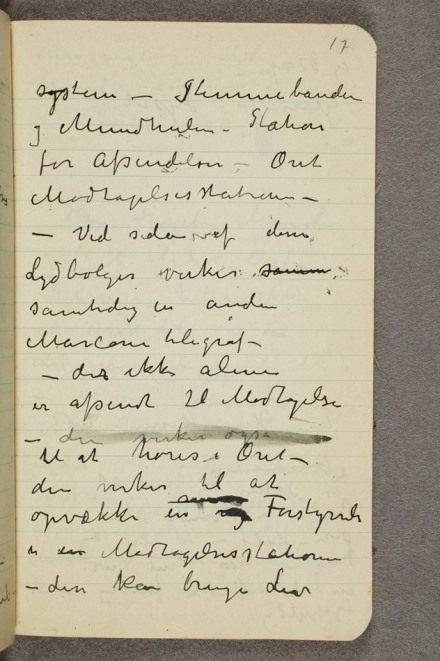 17
system — Stemmebanden
og Mundhulen – Station
for Afsendelsen – Øret
Modtagelsesstationen –
– Ved siden af disse
Lydbølger virker samm
samtidig en anden
Marconi telegraf –
– der ikke alene
er afsendt til Modtagelse
– den virker også
til at høres i Øret –
den virker til at
opvække en Forstyrrelse
i en Modtagelsesstationen
– den kan bringe